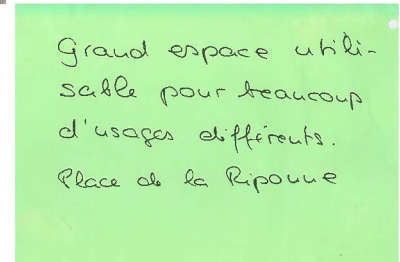 Grand espace utili-
sable pour beaucoup
d'usages différents.
Place de la Riponne